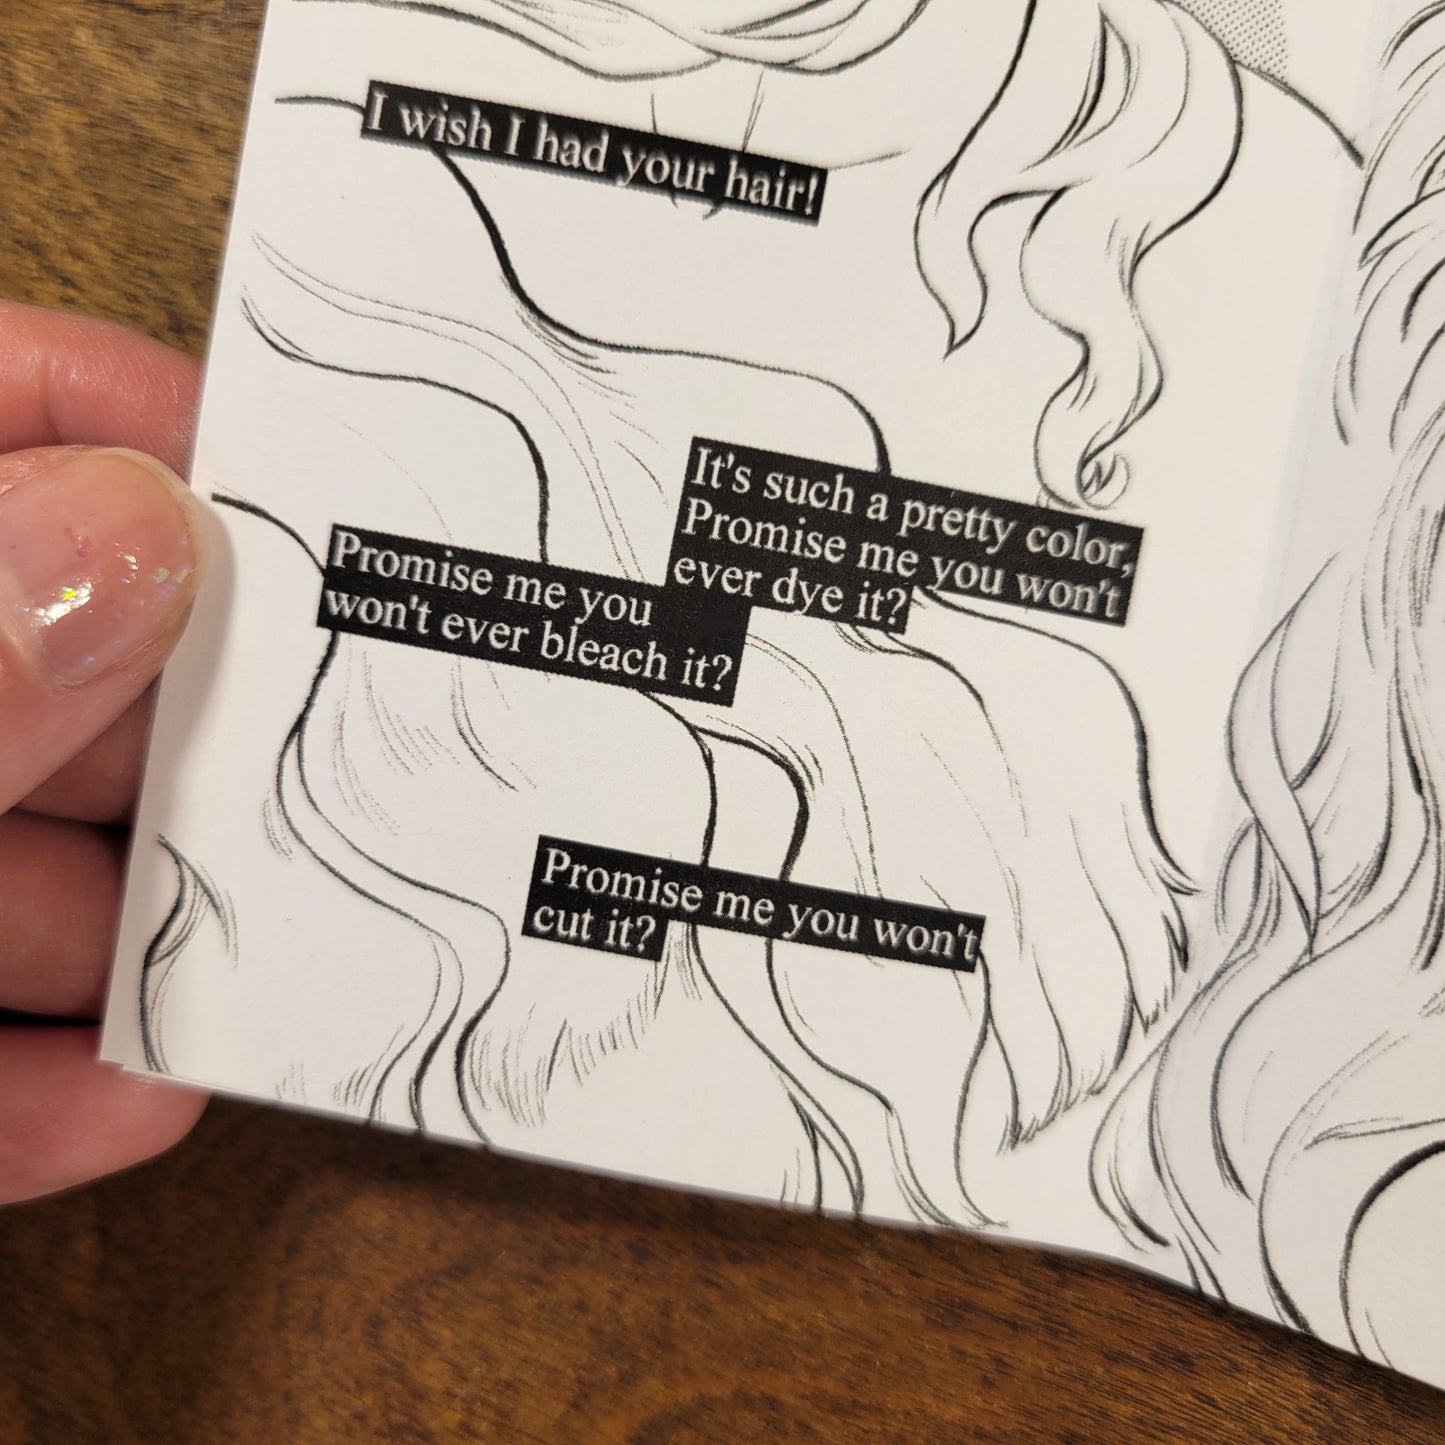 I wish I had your hair!
It's such a pretty color,
Promise me you won't
ever dye it?
Promise me you
won't ever bleach it?
Promise me you won't
cut it?